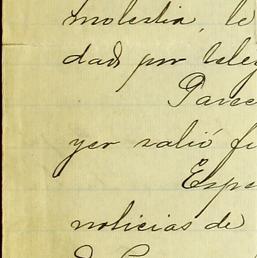 molestia, le
dad por tele
Parec
yer salió fi
Espe
noticias de